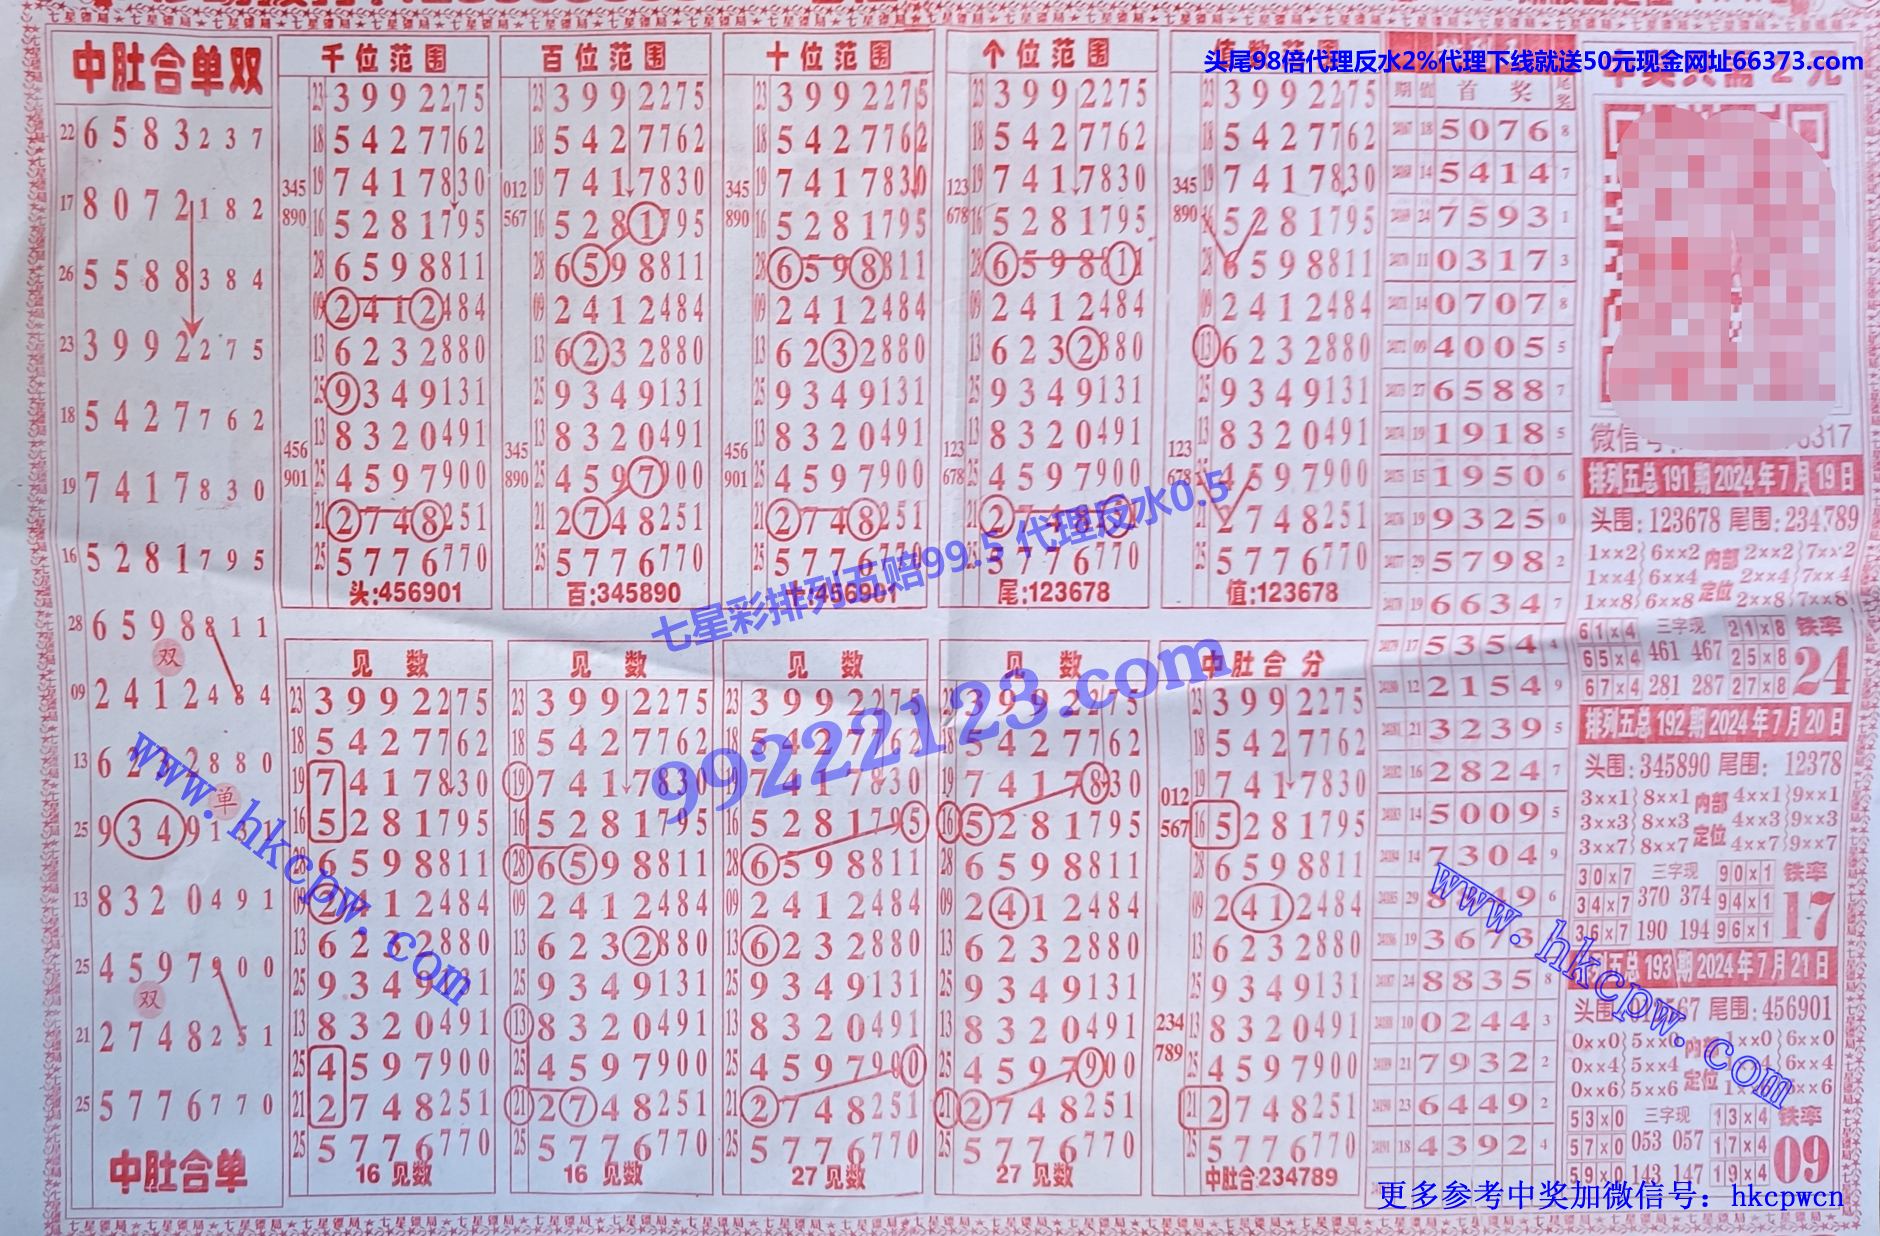 头尾98倍代理反水2%代理下线就送50元现金网址66373.com
中肚合单双
22 6583237
17 8072182
26 5588384
23 3992275
18 5427762
19 7417830
16 5281795
28 6598811
双
09 2412484
13
880
单
25 9349131
13 8320491
25 4597900
双
21 2748251
25 5776770
中肚合单
千位范围
23 3992275
18 5427762
345 19 7417830
890 16 5281795
28 6598811
09 2412484
13 6232880
25 9349131
456 13 8320491
901 25 4597900
21 2748251
25 5776770
头:456901
百位范围
23 3992275
18 5427762
012 19 7417830
567 16 5281795
28 6598811
09 2412484
13 6232880
25 9349131
345 13 8320491
890 25 4597900
21 2748251
25 5776770
百:345890
十位范围
23 3992275
18 5427762
345 19 7417830
890 16 5281795
28 6598811
09 2412484
13 6232880
25 9349131
456 13 8320491
901 25 4597900
21 2748251
25 5776770
十:456901
个位范围
23 3992275
18 5427762
123 19 7417830
678 16 5281795
28 6598811
09 2412484
13 6232880
25 9349131
123 13 8320491
678 25 4597900
21 2748251
25 5776770
尾:123678
23 3992275
18 5427762
345 19 7417830
890 16 5281795
28 6598811
09 2412484
13 6232880
25 9349131
123 13 8320491
678 25 4597900
21 2748251
25 5776770
值:123678
见数
23 3992275
18 5427762
19 7417830
16 5281795
28 6598811
09 2412484
13 6232880
25 9349131
13 8320491
25 4597900
21 2748251
25 5776770
16 见数
见数
23 3992275
18 5427762
19 7417830
16 5281795
28 6598811
09 2412484
13 6232880
25 9349131
13 8320491
25 4597900
21 2748251
25 5776770
16 见数
见数
23 3992275
18 5427762
19 7417830
16 5281795
28 6598811
09 2412484
13 6232880
25 9349131
13 8320491
25 4597900
21 2748251
25 5776770
27 见数
见数
23 3992275
18 5427762
19 7417830
16 5281795
28 6598811
09 2412484
13 6232880
25 9349131
13 8320491
25 4597900
21 2748251
25 5776770
27 见数
中肚合分
23 3992275
18 5427762
012 19 7417830
567 16 5281795
28 6598811
09 2412484
13 6232880
25 9349131
234 13 8320491
789 25 4597900
21 2748251
25 5776770
中肚合:234789
期 值 首奖 尾奖
18 5076 8
14 5414 7
24 7593 1
11 0317 3
14 0707 8
09 4005 5
27 6588 7
19 1918 5
15 1950 6
19 9325 0
29 5798 2
19 6634 7
17 5354 4
12 2154 9
21 3239 5
16 2824 7
14 5009 5
14 7304 9
29
6
19
24 8835 8
10 0244 3
21 7932 2
23 6449 2
18 4392 4
微信号
317
排列五总191期2024年7月19日
头围:123678 尾围:234789
1××2 6××2 内部 2××2 7××2
1××4 6××4 定位 2××4 7××4
1××8 6××8 2××8 7××8
61×4 三字现 21×8 铁率
65×4 461 467 25×8 24
67×4 281 287 27×8
排列五总192期2024年7月20日
头围:345890 尾围: 12378
3××1 8××1 内部 4××1 9××1
3××3 8××3 4××3 9××3
3××7 8××7 定位 4××7 9××7
30×7 三字现 90×1 铁率
34×7 370 374 94×1 17
36×7 190 194 96×1
五总193期2024年7月21日
头围
567 尾围:456901
0××0 5××0 内部
××0 6××0
0××4 5××4 定位
6××4
0××6 5××6
6××6
53×0 三字现 13×4 铁率
57×0 053 057 17×4 09
59×0 143 147 19×4
七星彩排列五赔99.5 代理反水0.5
99222123.com
www.hkcpw.com
www.hkcpw.com
更多参考中奖加微信号：hkcpwcn